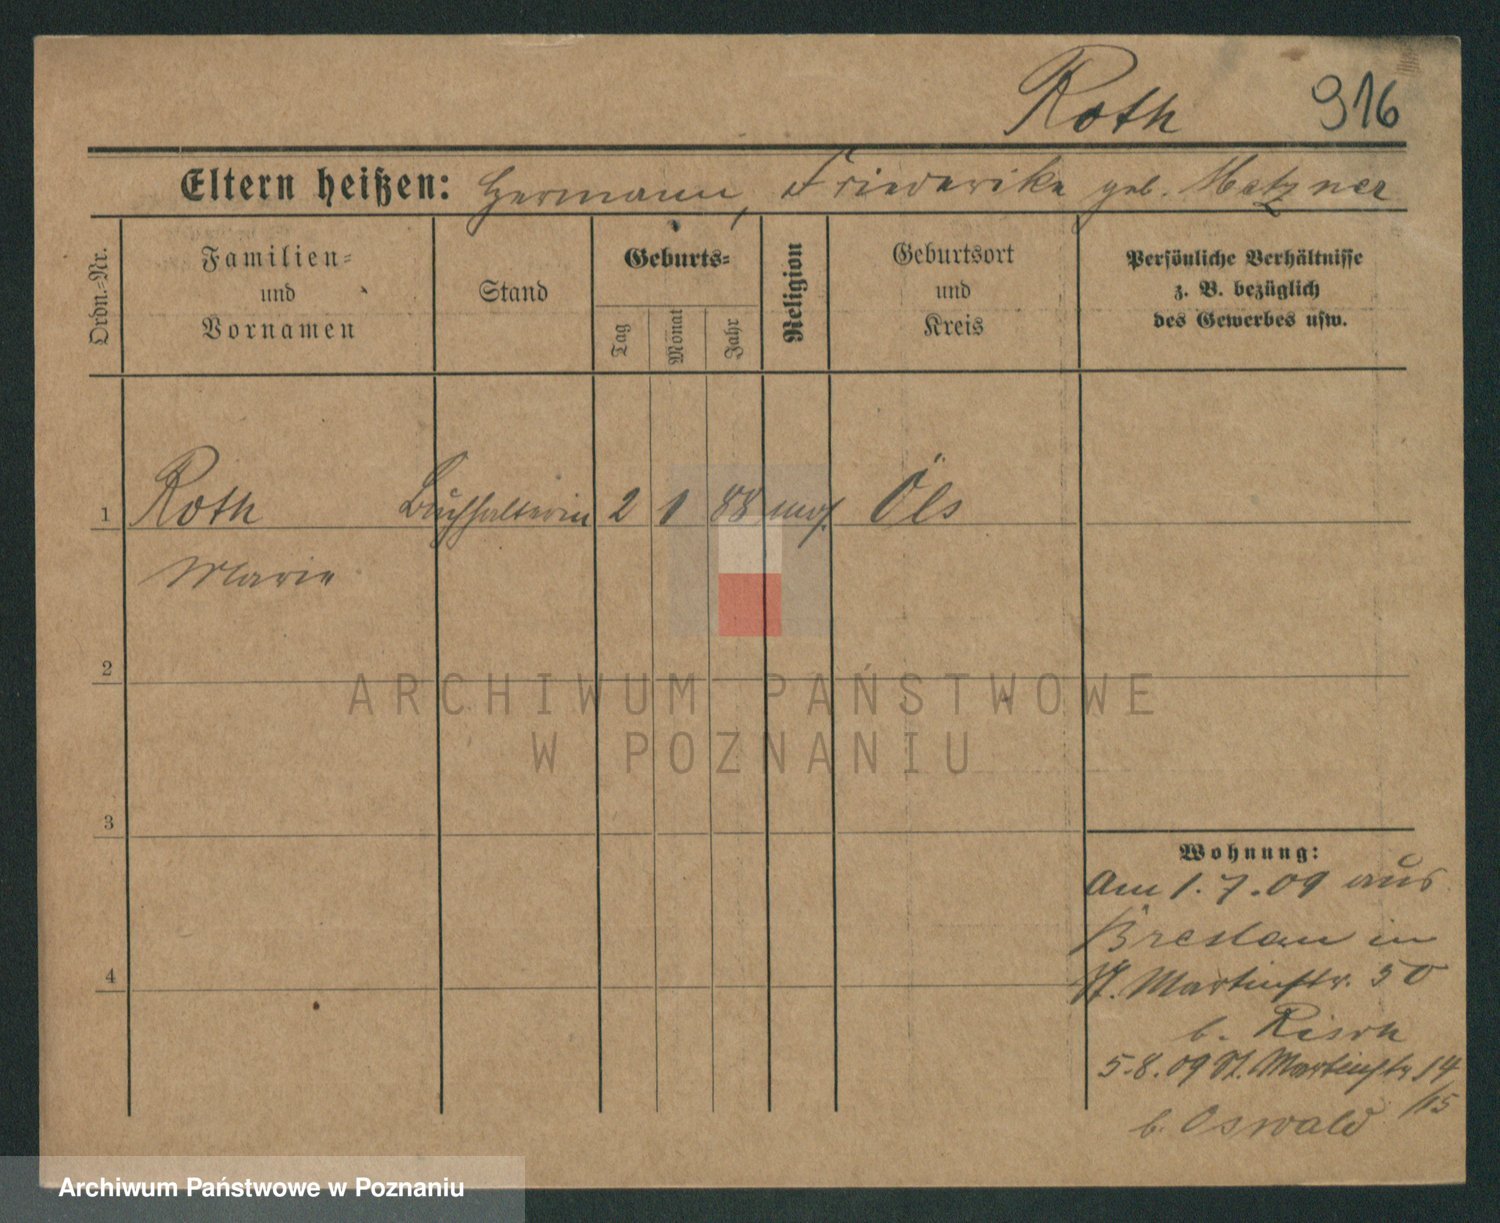 Roth 916
Eltern heißen: Hermann, Friederike geb. Metzner
Ordn.-Nr.
Familien-
und
Vornamen
Stand
Geburts-
Tag
Monat
Jahr
Religion
Geburtsort
und
Kreis
Persönliche Verhältnisse
z. B. bezüglich
des Gewerbes usw.
1 Roth Buchhalterin 2 1 88 mos. Öls
Marie
2
3
4
Wohnung:
Am 1.7.09 aus
Breslau in
St. Martinstr. 50
b.
5.8.09 St. Martinstr. 14
/15
b. Oswald
ARCHIWUM PAŃSTWOWE
W POZNANIU
Archiwum Państwowe w Poznaniu